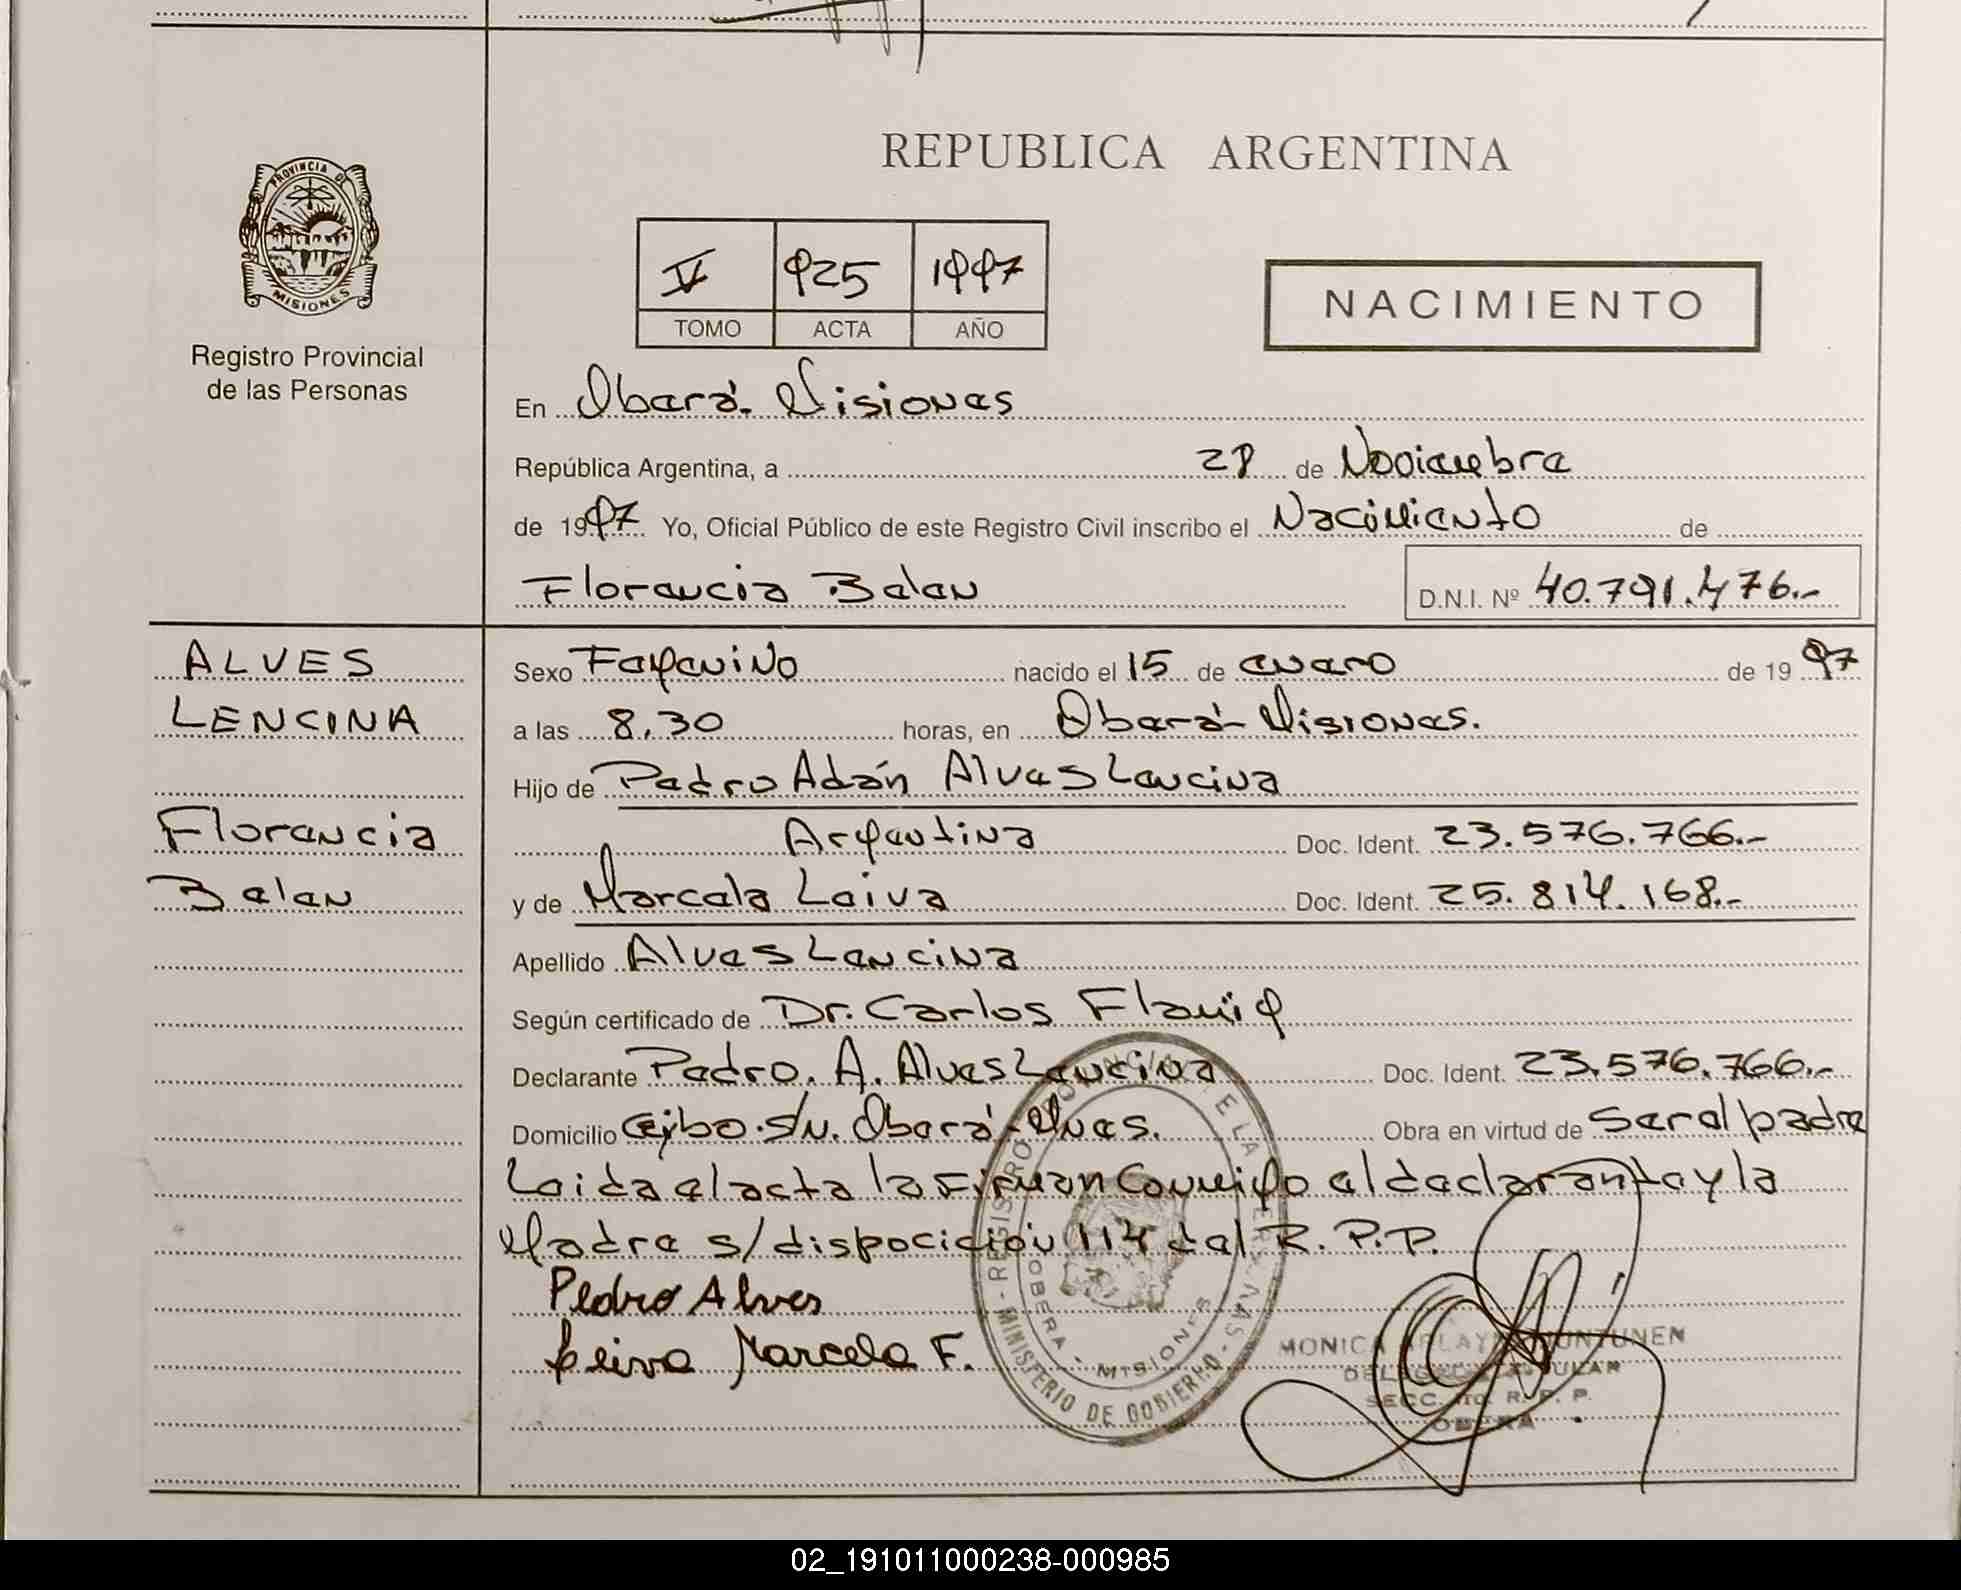 REPUBLICA ARGENTINA
PROVINCIA DE
MISIONES
Registro Provincial
de las Personas
V 925 1997
TOMO ACTA AÑO
NACIMIENTO
En Oberá- Misiones
República Argentina, a 28 de Noviembre
de 1997 Yo, Oficial Público de este Registro Civil inscribo el Nacimiento de
Florencia Belen D.N.I. Nº 40.791.476.-
ALVES
LENCINA
Florencia
Belen
Sexo Femenino nacido el 15 de enero de 1997
a las 8,30 horas, en Oberá- Misiones.
Hijo de Pedro Adán Alves Lencina
Argentina Doc. Ident. 23.576.766.-
y de Marcela Leiva Doc. Ident. 25.814.168.-
Apellido Alves Lencina
Según certificado de Dr. Carlos
Declarante Pedro. A. Alves Lencina Doc. Ident. 23.576.766.-
Domicilio Ceibo. s/n. Oberá- Mnes. Obra en virtud de Ser el padre
Leida el acta la Firman Conmigo el declarante y la
Madre s/disposcición 114 del R.P.P.
Pedro Alves
Leiva Marcela F.
REGISTRO PROVINCIAL DE LAS PERSONAS - MINISTERIO DE GOBIERNO -
OBERA - MISIONES
MONICA
SECC. R. P. P.
OBERA
02_191011000238-000985